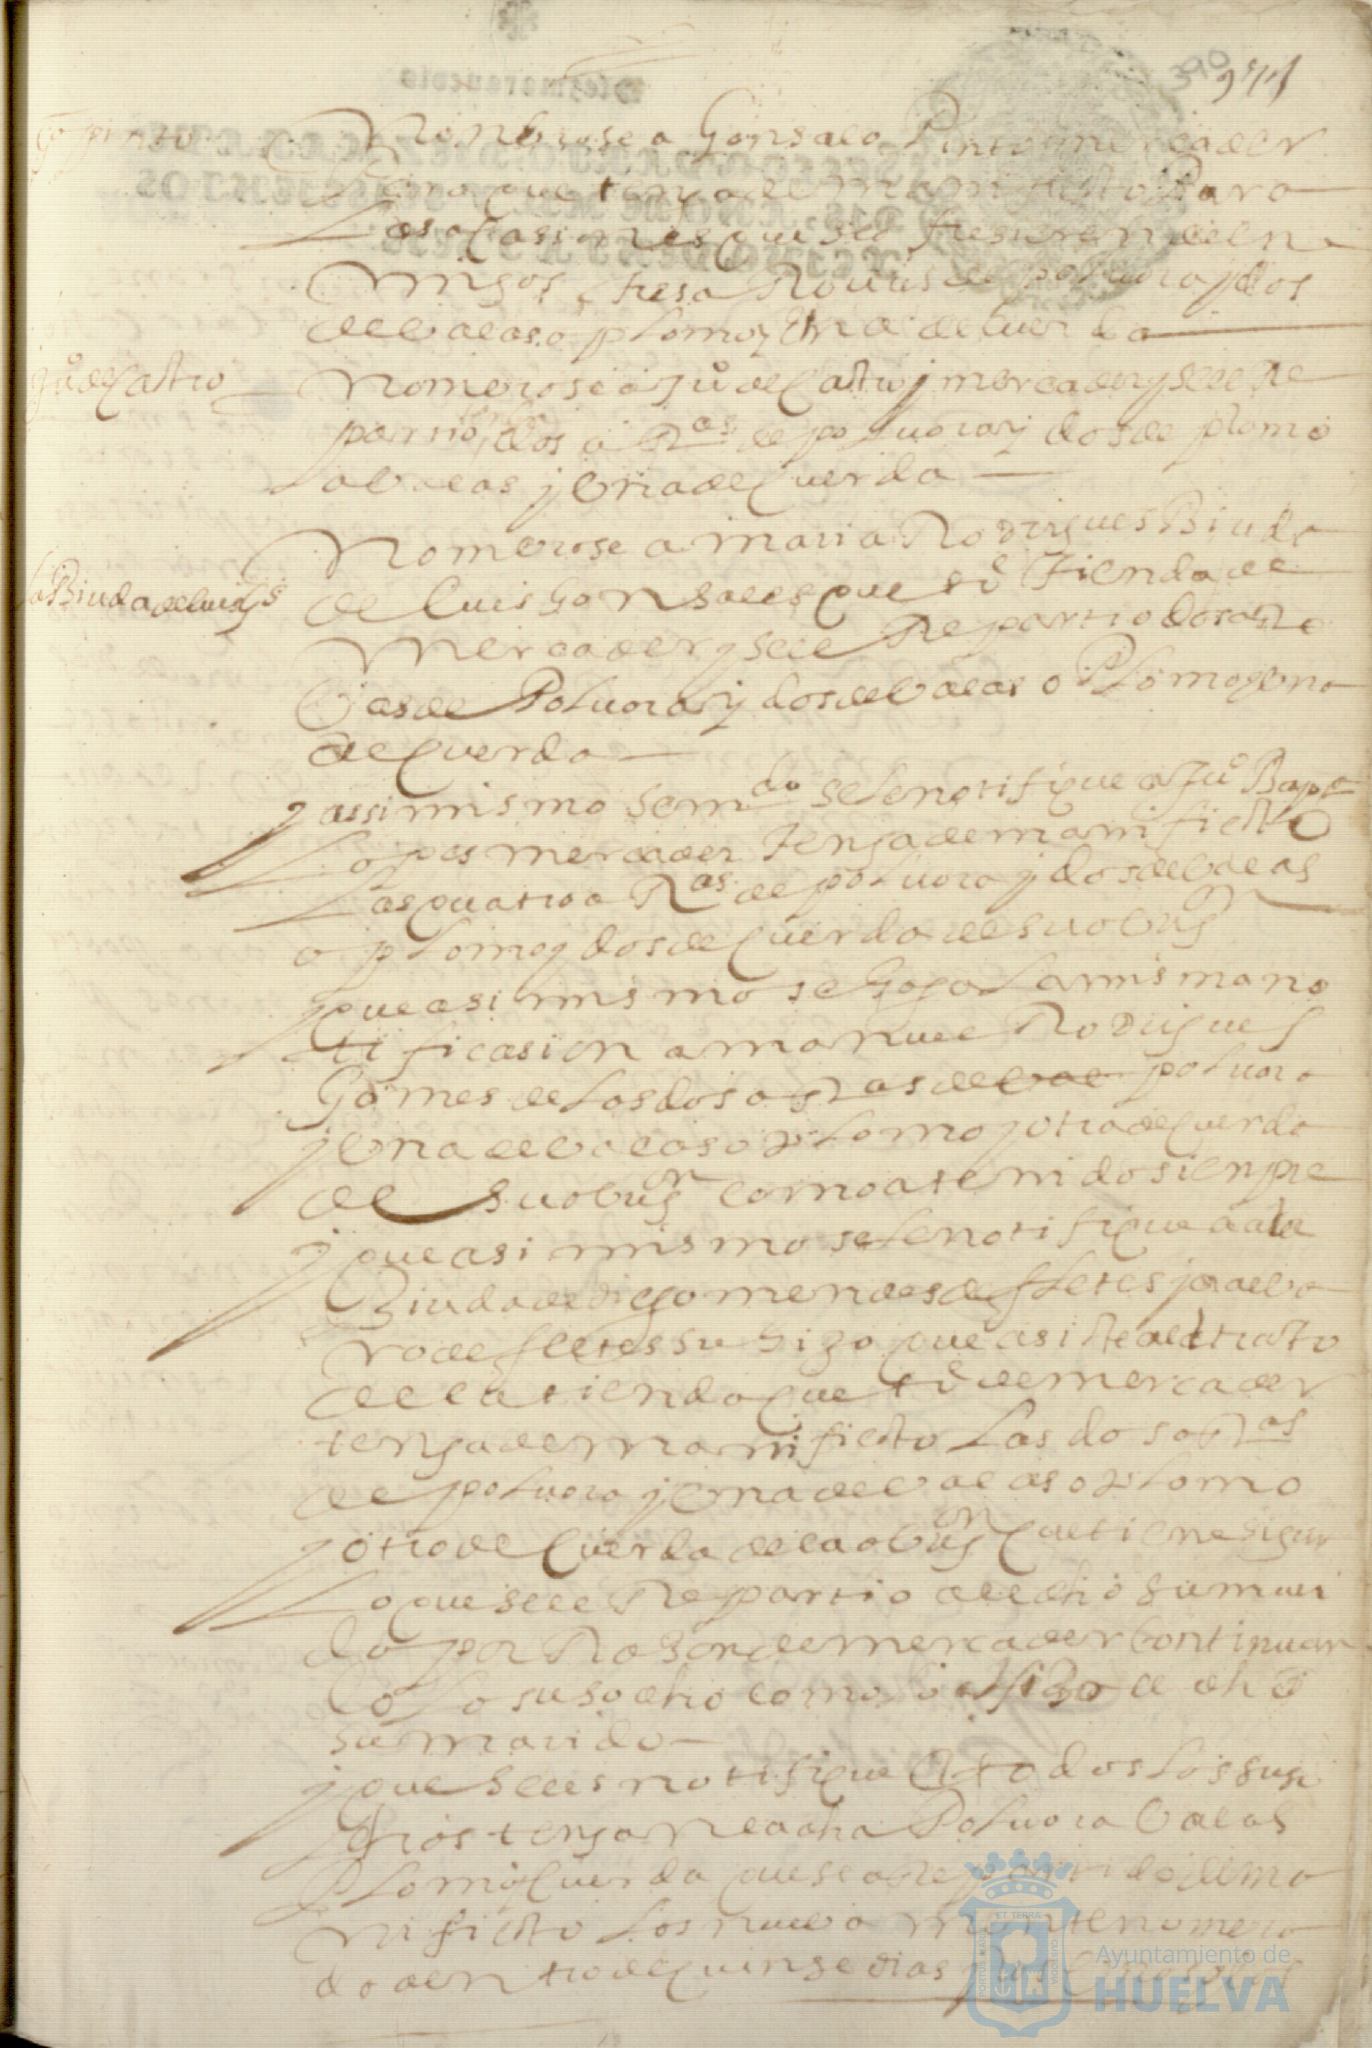 390
Go pinto
Nonbrose a Gonsalo Pinto mercader
que tenga de manifiesto Para
Las ocasiones que se ofresieren de ene
migos tres aRovas de polvora y dos
de balas o plomo y Una de cuerda
Juº de Castro
Nombrose a Juº de Castro mercader y se le Re
partio dos a Ras de polvora y dos de plomo
o balas y Una de Cuerda
La Biuda de luis gs
Nombrose a maria Rodrigues Biuda
de Luis Gonsales que tiº Tienda de
Mercader y se le Repartio dos aRo
bas de Polvora y dos de balas o Plomo y una
de Cuerda
y assimismo se mdo se le notifique a Juº Bapta
Lopes mercader Tenga de manifiesto
Las quatro a Ras de polvora y dos de balas
o plomo y dos de Cuerda de su obligon
y que asimismo se haga La misma no
tificasion a manuel Rodrigues
Gomes de Las dos a Ras de polvora
y Una de balas o plomo y otra de Cuerda
de su obligon como a tenido sienpre
y que asimismo se le notifique a la
Biuda de diego mendes de fletes y a alva
ro de fletes su hijo que asiste al trato
de la tienda que tiº de mercader
tenga de manifiesto Las dos a Ras
de polvora y Una de balas o plomo
y otra de Cuerda de la obligon que tiene sigun
Lo que se le Repartio al dho su mari
do por Rason de mercader Continuan
do Lo susodho como lo hizo el dho
su marido
y que se les notifique A todos Los suso
dhos tengan la dha Polvora balas
Plomo y Cuerda que se a repartido de ma
nifiesto
dentro de quinse dias
Ayuntamiento de
HUELVA